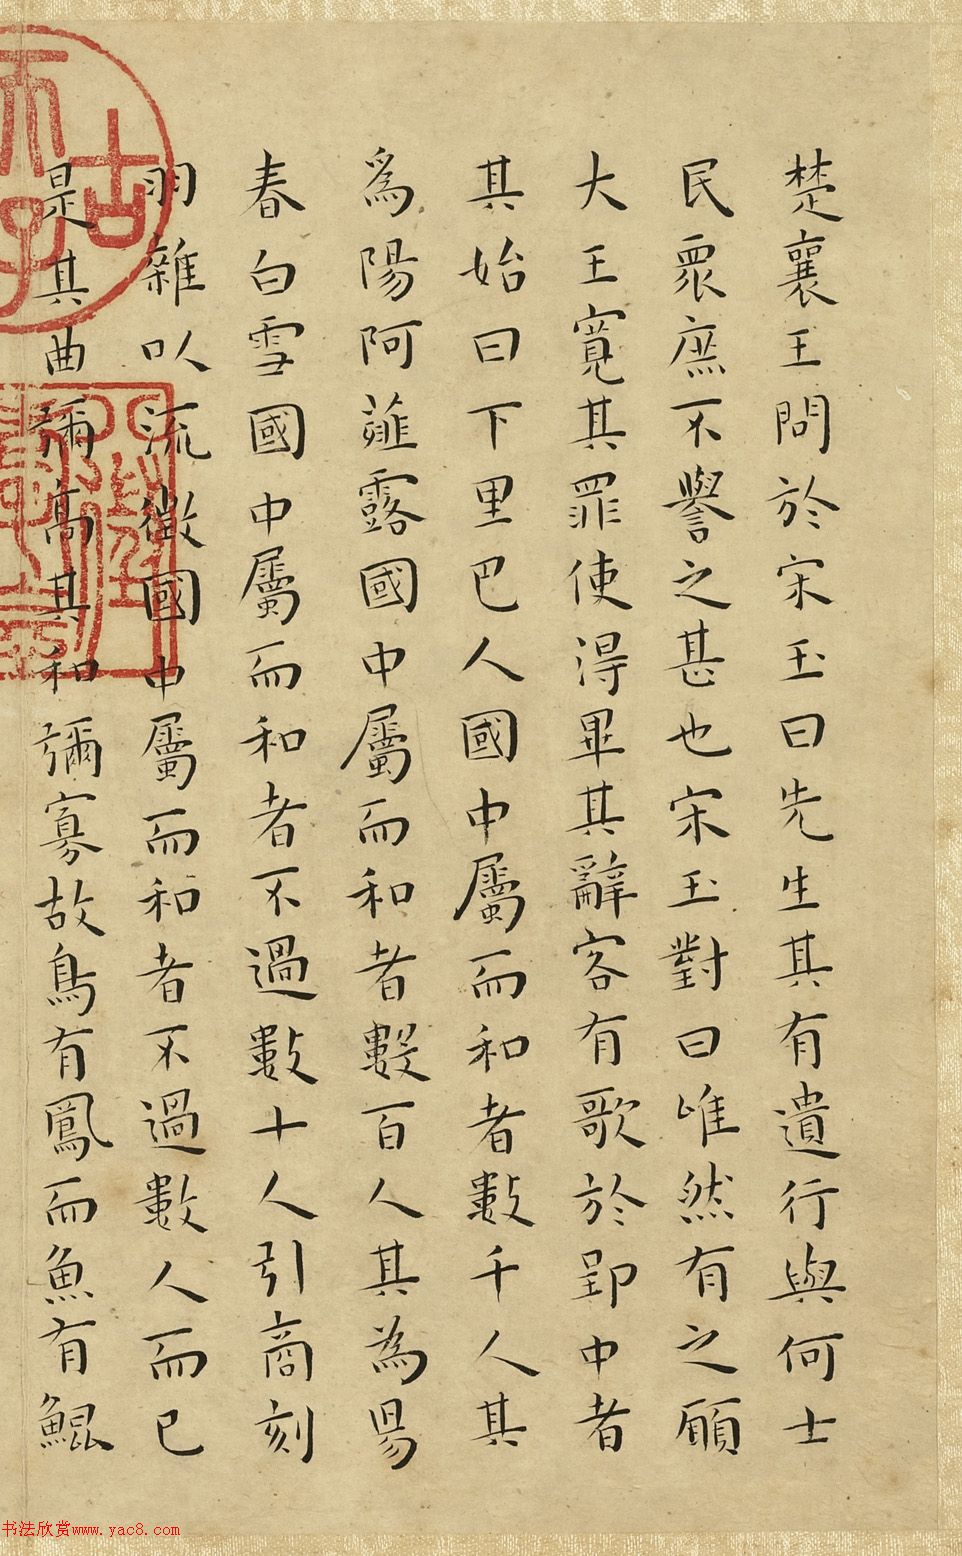 楚襄王問於宋玉曰先生其有遺行與何士
民眾庶不譽之甚也宋玉對曰唯然有之願
大王寬其罪使得畢其辭客有歌於郢中者
其始曰下里巴人國中屬而和者數千人其
爲陽阿薤露國中屬而和者數百人其為陽
春白雪國中屬而和者不過數十人引商刻
羽雜以流徵國中屬而和者不過數人而已
是其曲彌高其和彌寡故鳥有鳳而魚有鯤
书法欣赏www.yac8.com